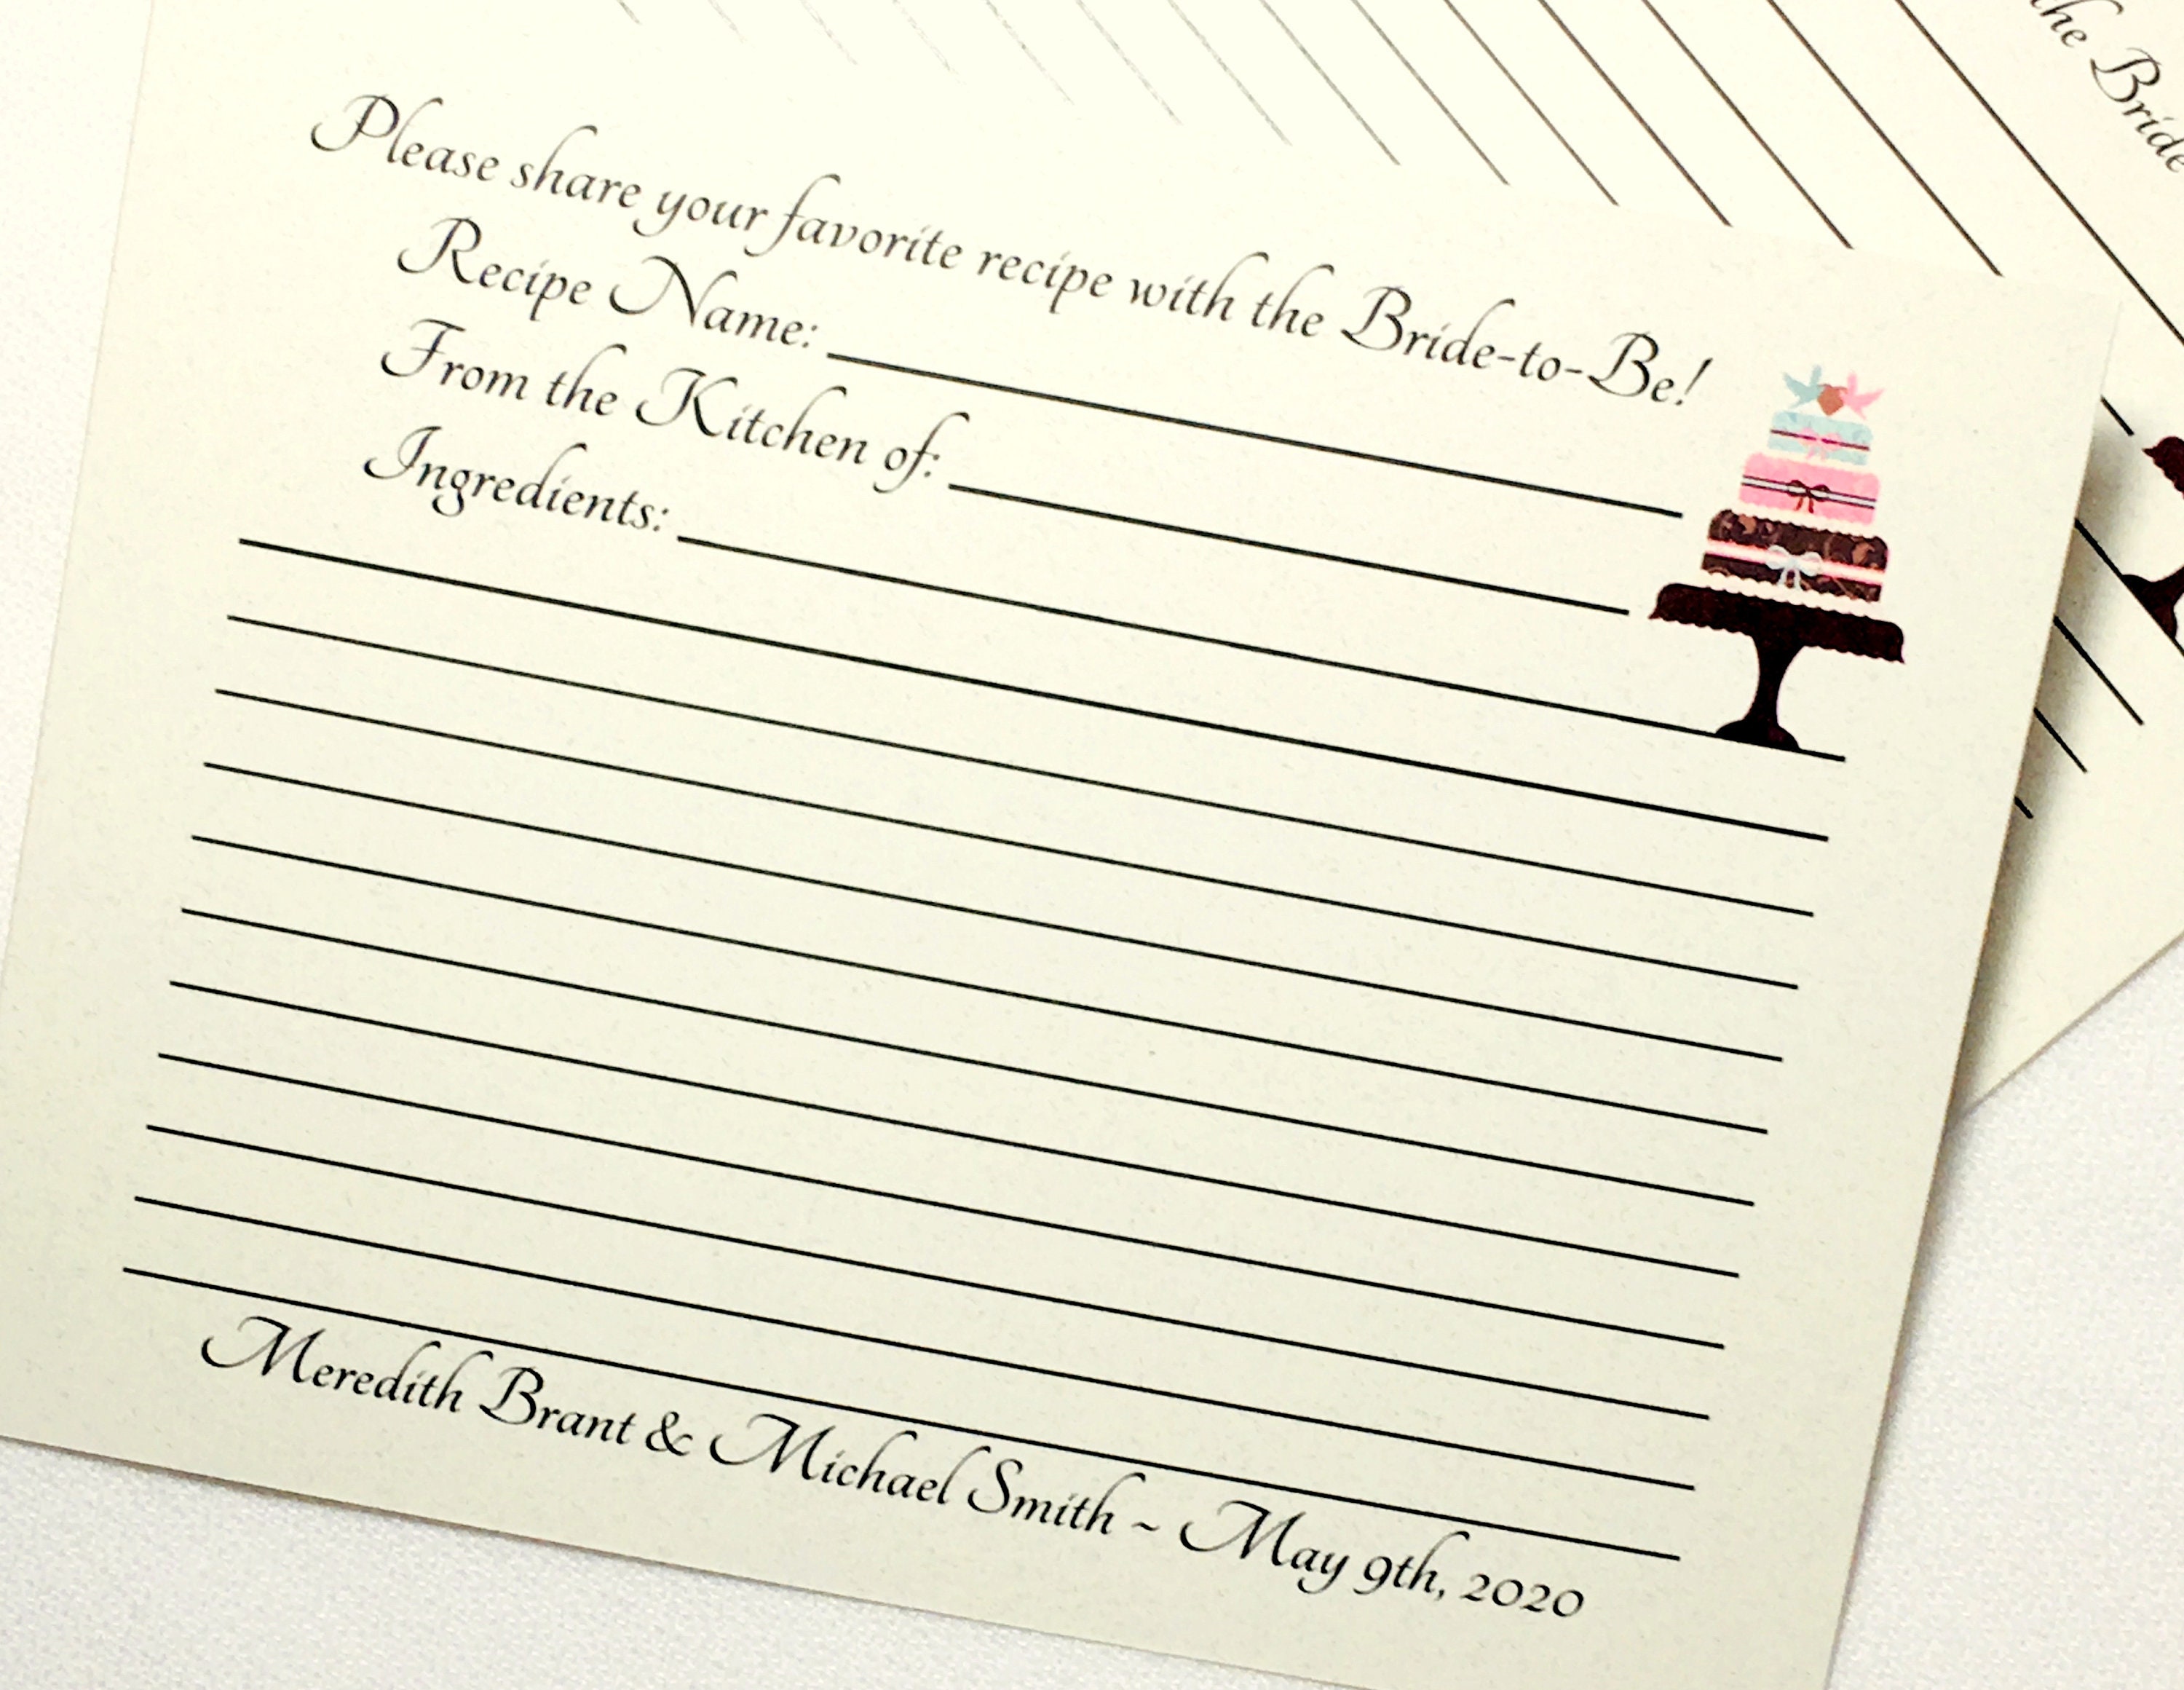 Please share your favorite recipe with the Bride-to-Be!
Recipe Name:
From the Kitchen of:
Ingredients:
Meredith Brant & Michael Smith ~ May 9th, 2020
the Bride